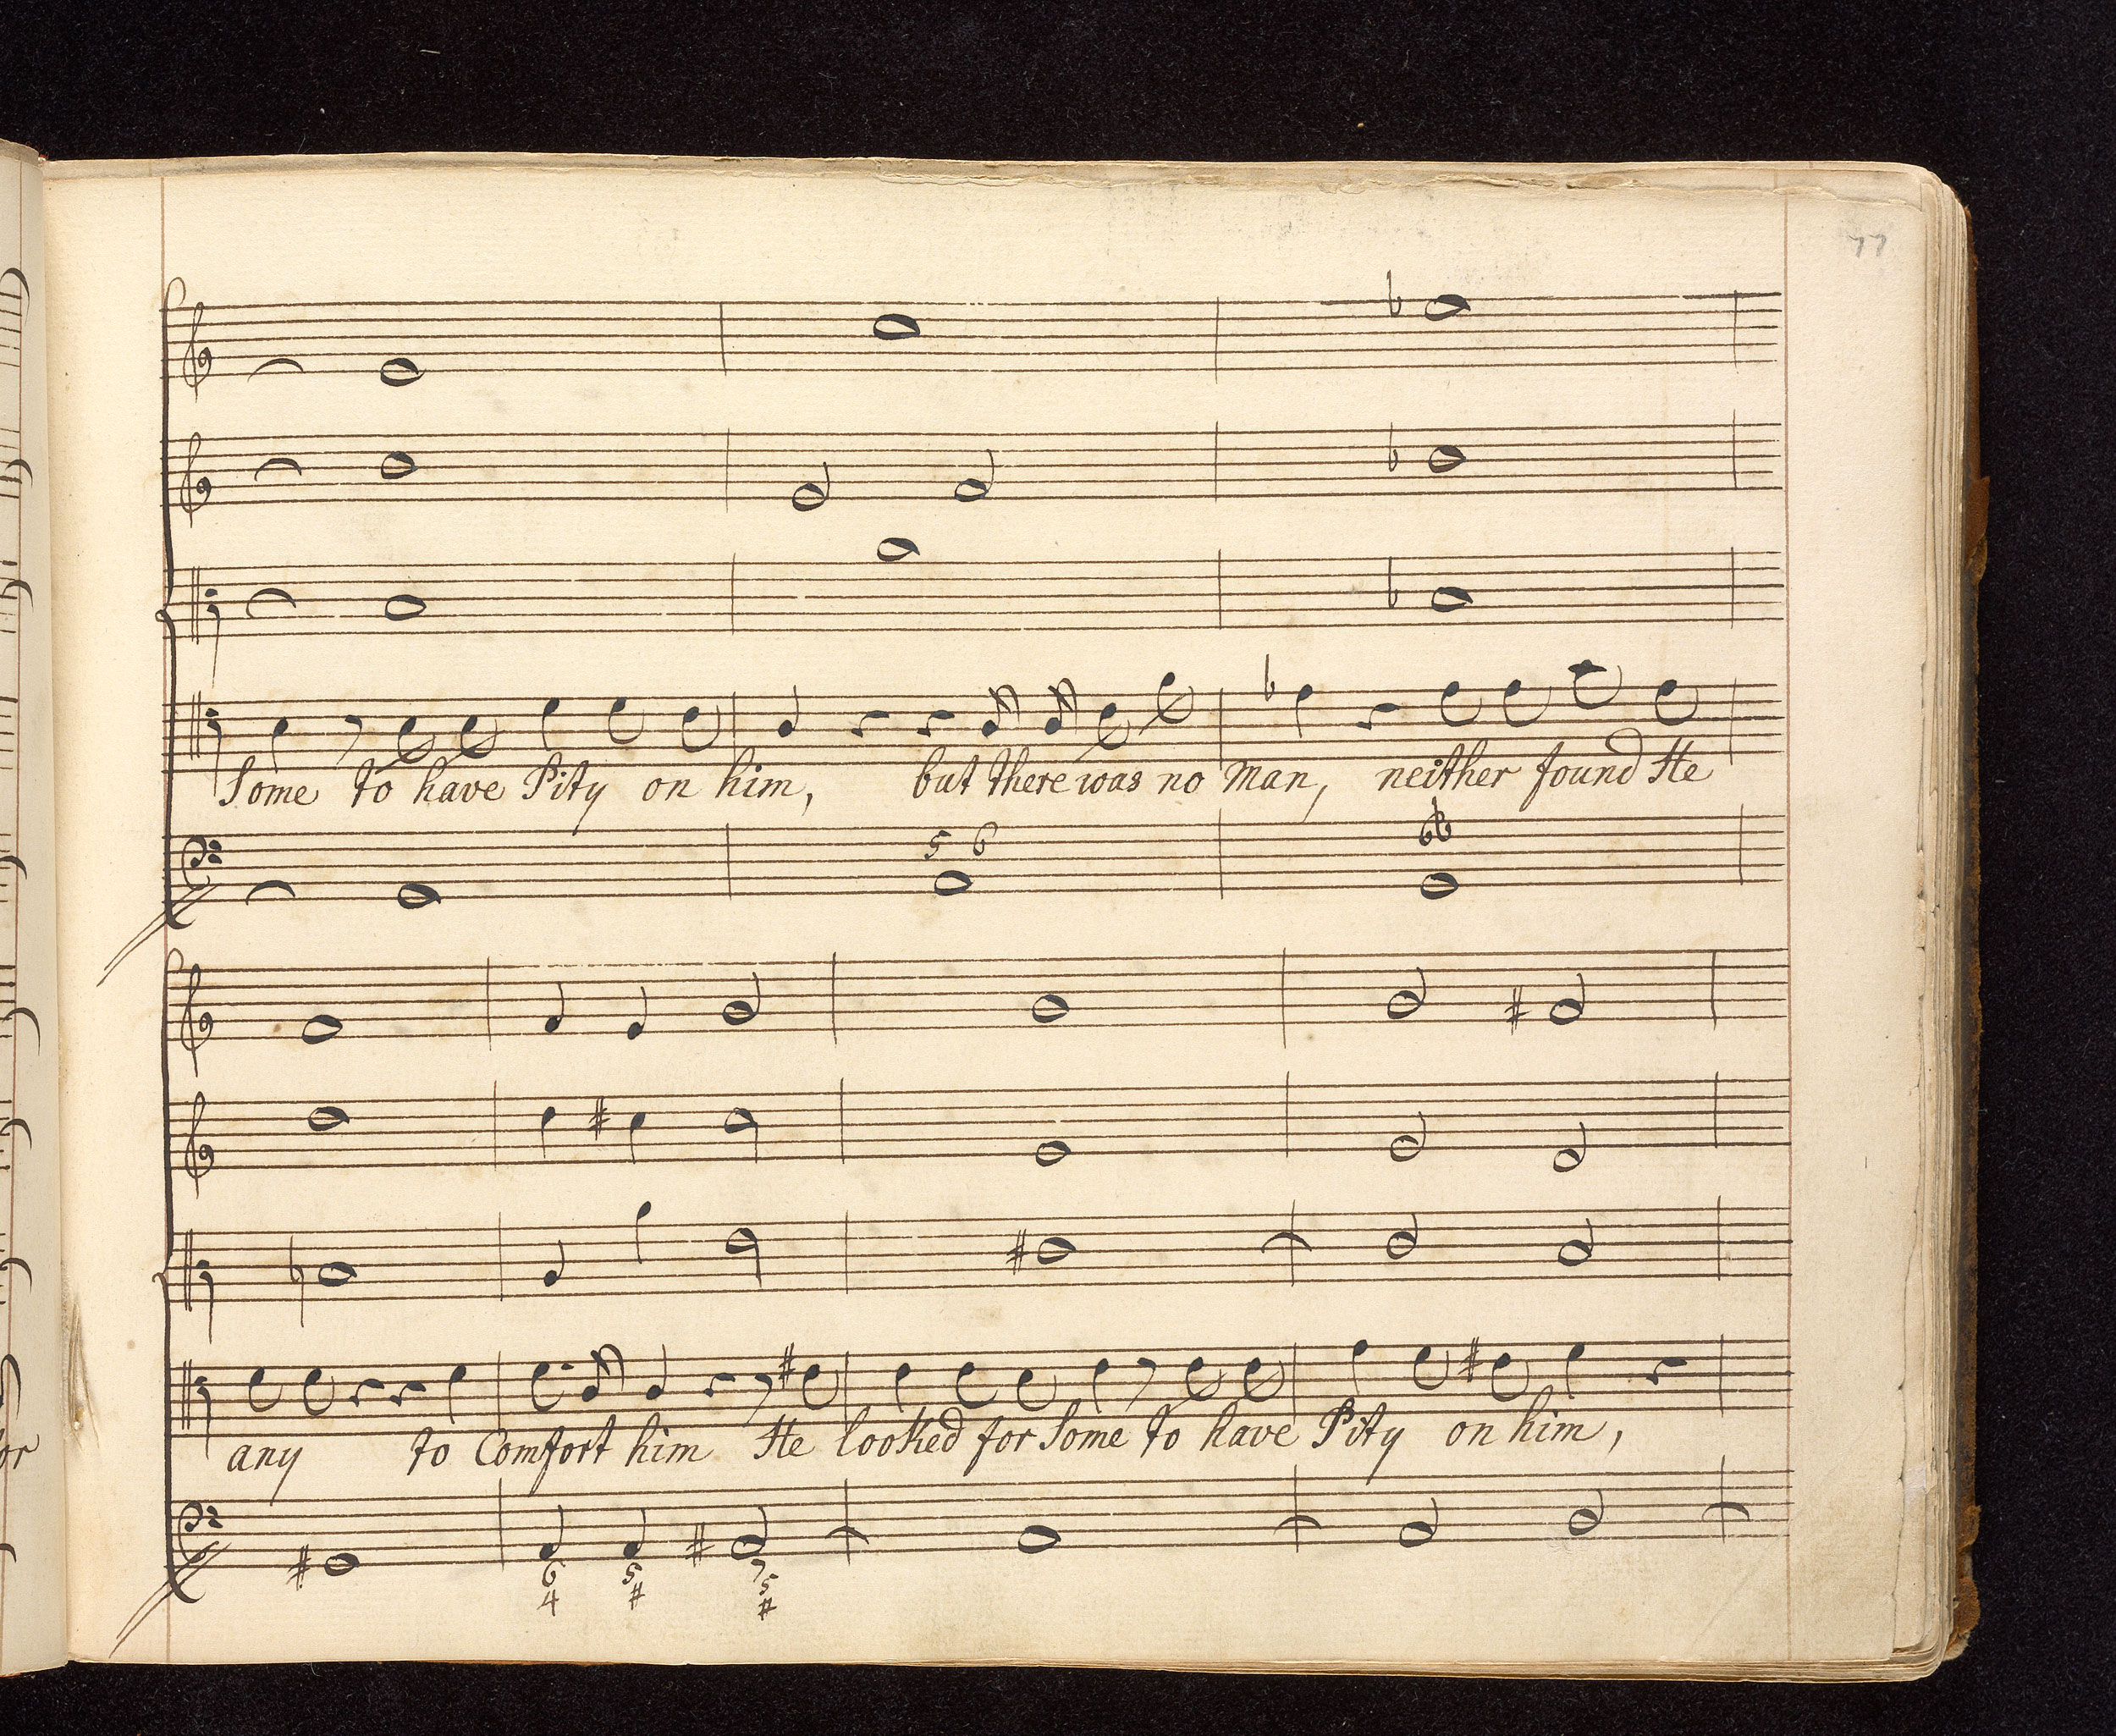 77
Some to have Pity on him, but there was no Man, neither found He
5 6
6b
any to Comfort him He looked for Some to have Pity on him,
6 5 7
4 # 5
#
or